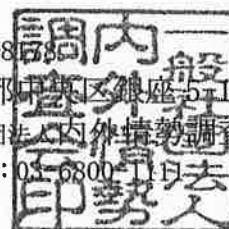 8178
都中央区銀座 5-1
団法人内外情勢調査
: 03-6800-1111
一般社団法人
内外情勢
調査会印